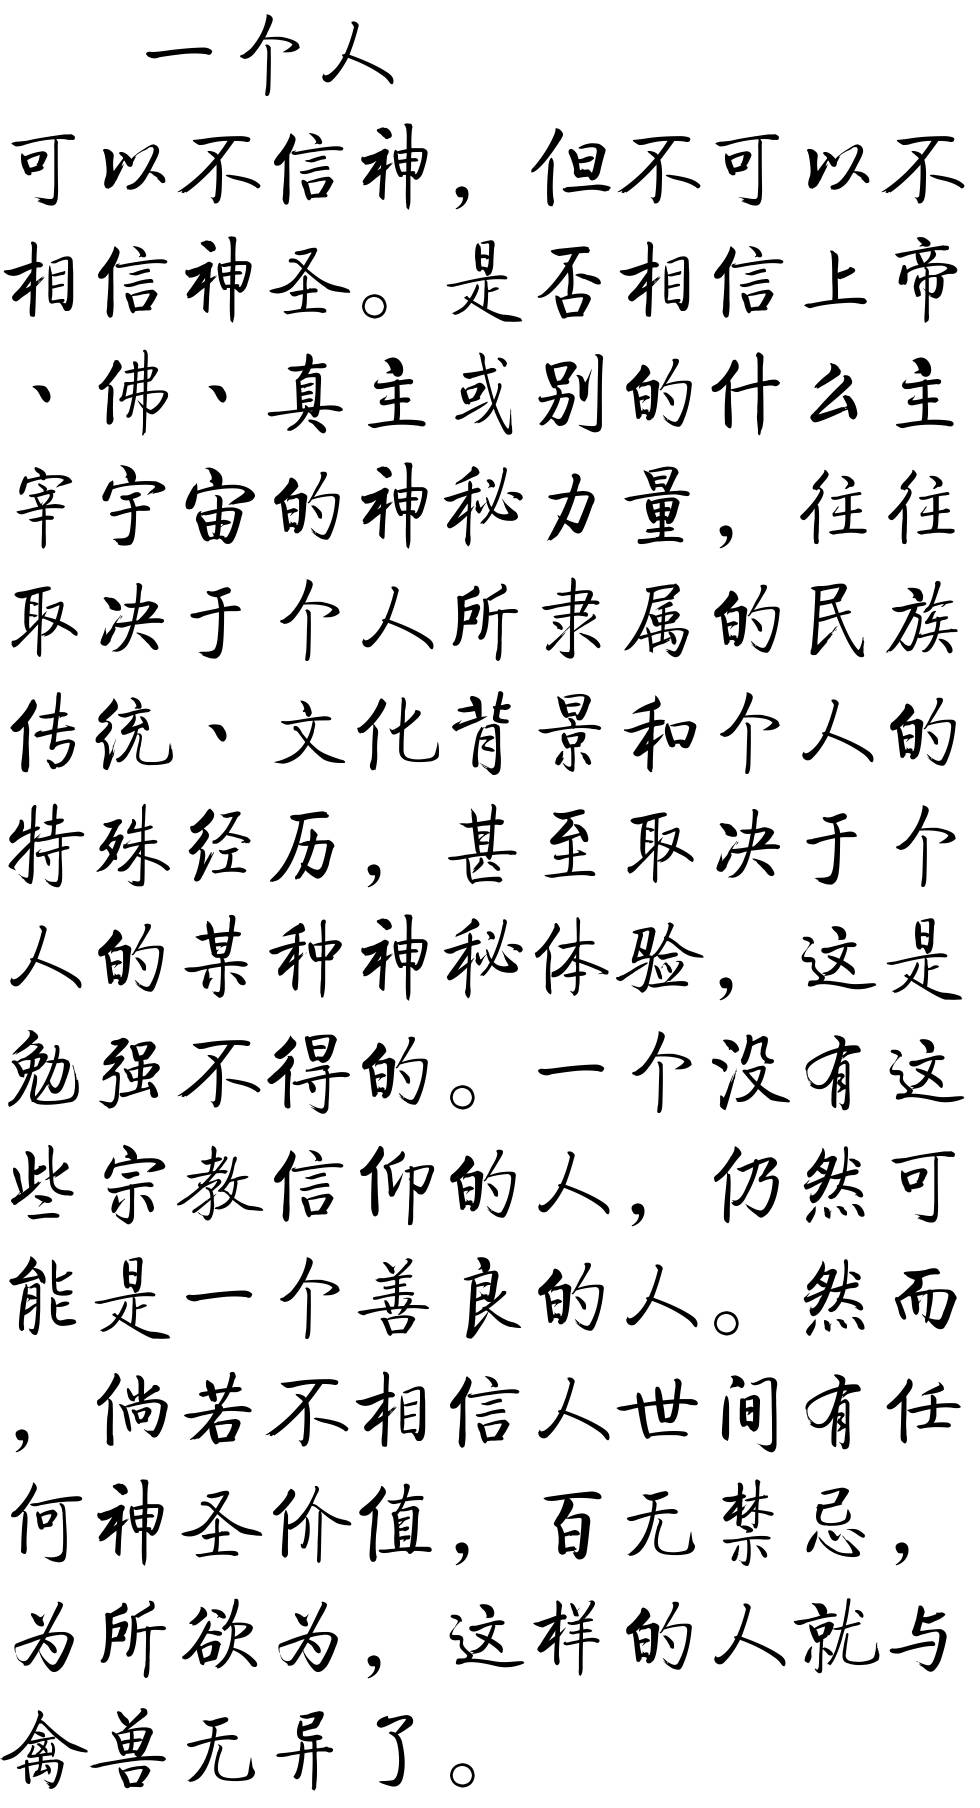 一个人
可以不信神，但不可以不
相信神圣。是否相信上帝
、佛、真主或别的什么主
宰宇宙的神秘力量，往往
取决于个人所隶属的民族
传统、文化背景和个人的
特殊经历，甚至取决于个
人的某种神秘体验，这是
勉强不得的。一个没有这
些宗教信仰的人，仍然可
能是一个善良的人。然而
，倘若不相信人世间有任
何神圣价值，百无禁忌，
为所欲为，这样的人就与
禽兽无异了。